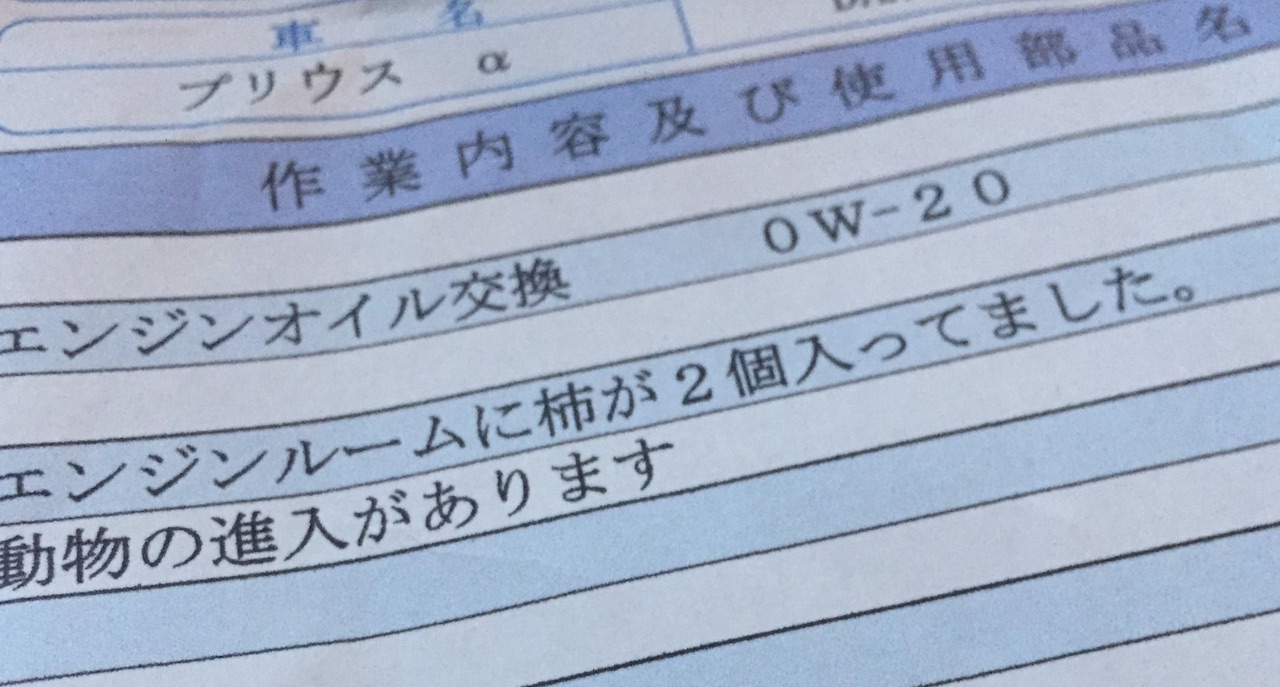 車 名
プリウス α
作業内容及び使用部品名
エンジンオイル交換 0W-20
エンジンルームに柿が2個入ってました。
動物の進入があります